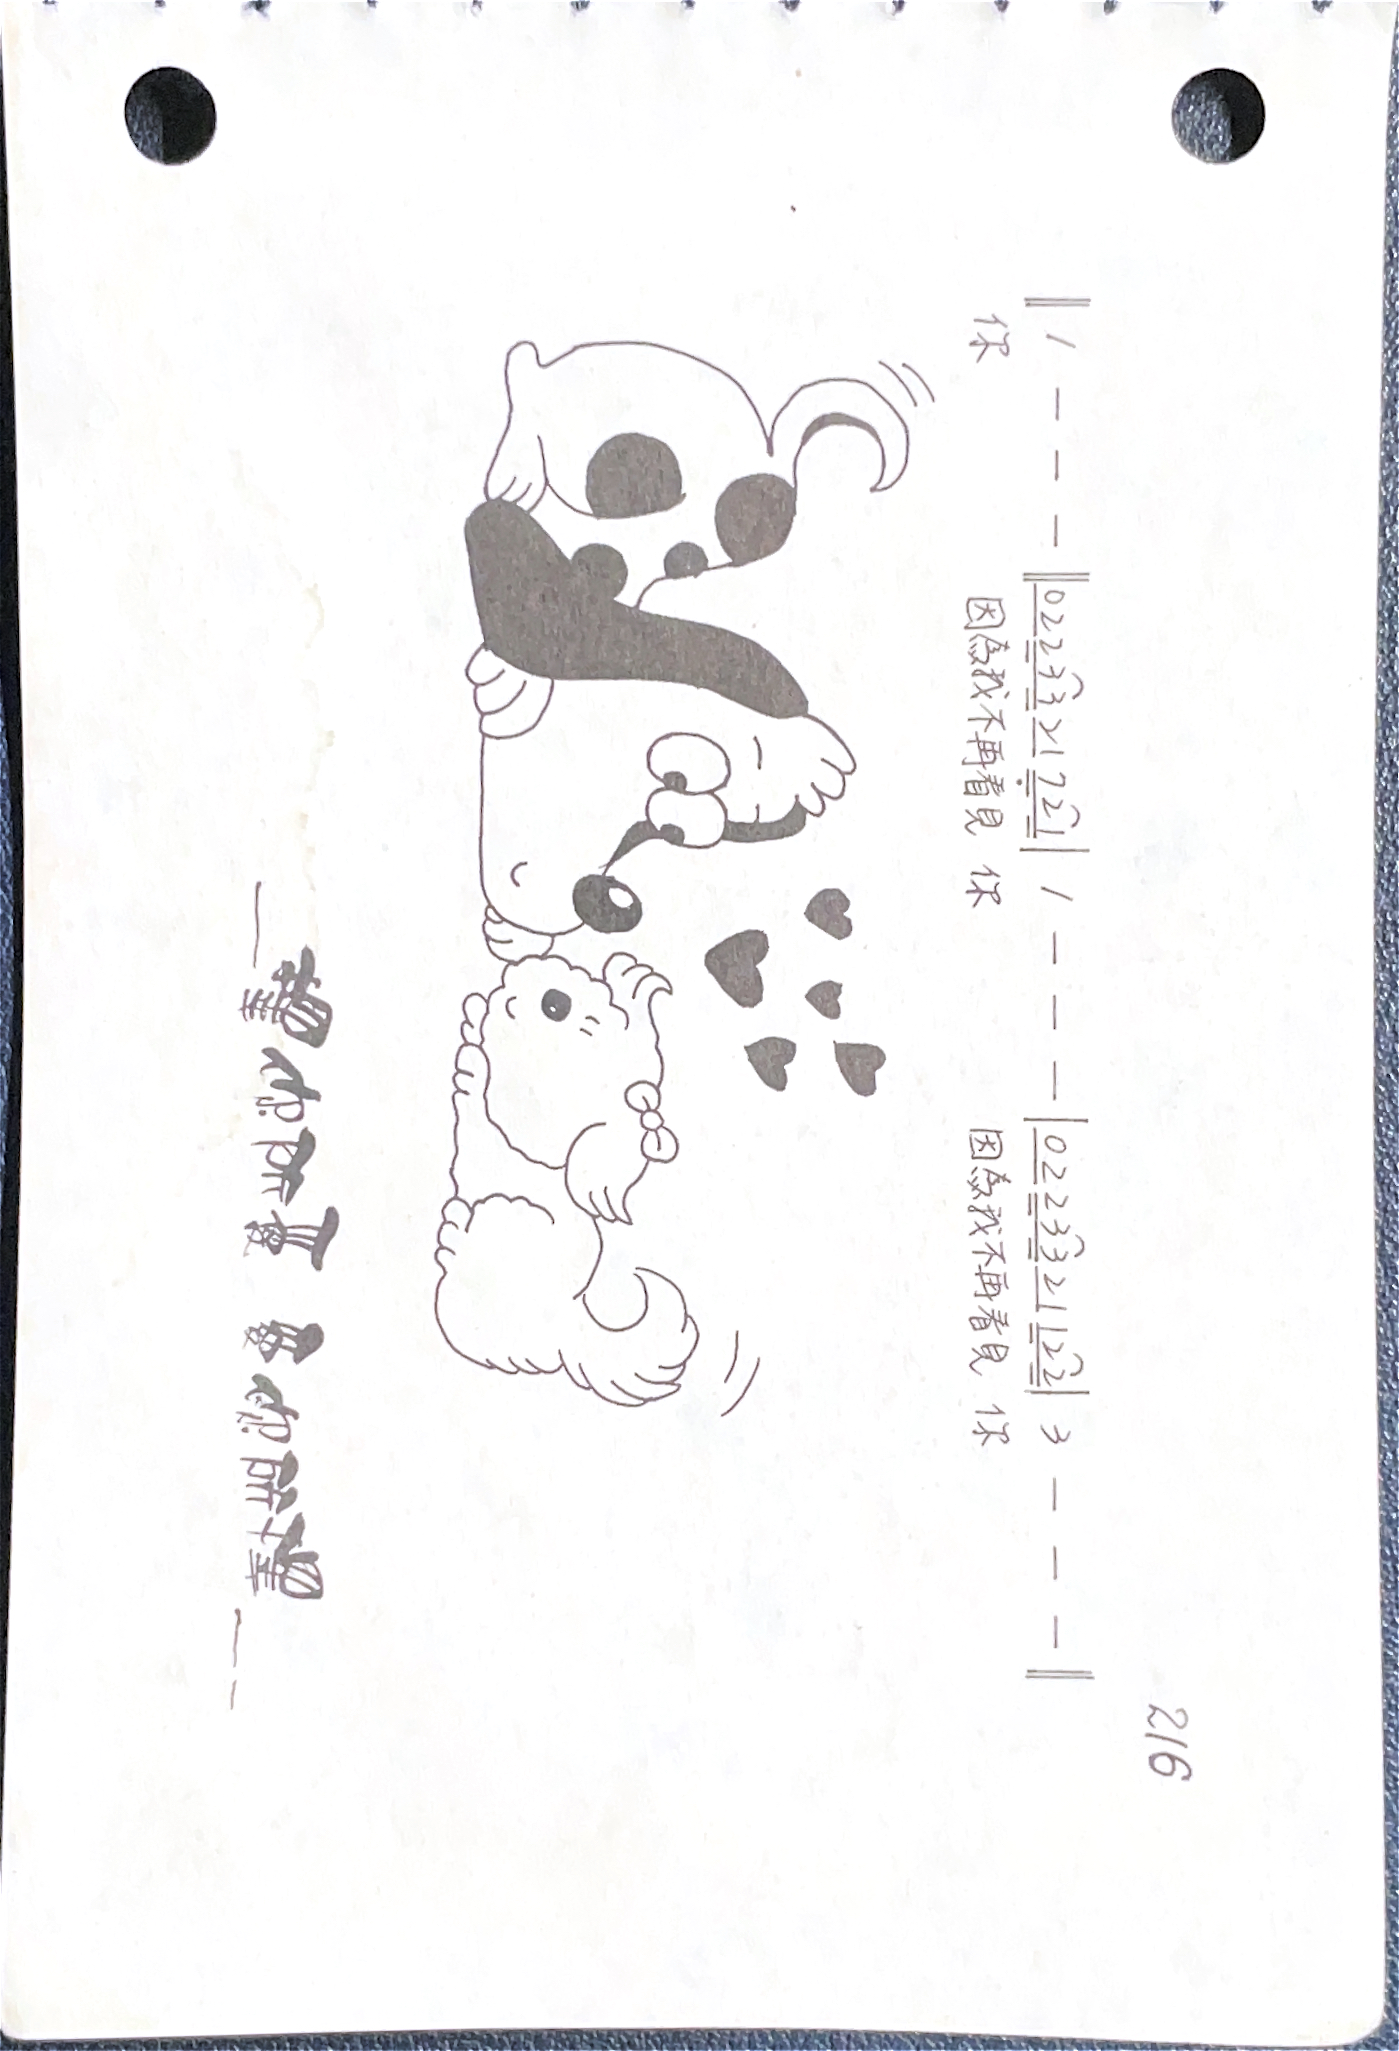 216
‖ 1 - - - ‖ 0 2 2 3 3 2 1 7 2 1 | 1 - - - | 0 2 2 3 3 2 1 1 2 2 | 3 - - - ‖
你 因為我不再看見 你 因為我不再看見 你
—擇你所愛 愛你所擇---